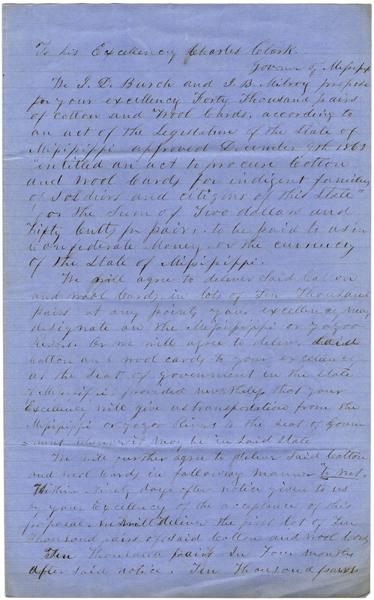 To his Excellency Charles Clark.
Govenor of Missippi
We J. D. Burch and J. B. Milroy propose
for your excellency Forty Thousand pairs
of Cotton and Wool Cards, according to
an act of the Legislature of the State of
Missippippi approved December 9th 1863
"entitled an act to procure Cotton
and Wool Cards for indigent families
of Soldiers and citizens of this State"
for the Sum of Two dollars and
Fifty Cents pr pair, to be paid to us in
Confederate Money or the currency
of the State of Missippippi.
We will agree to deliver said Cotton
and wool Cards in lots of Ten Thousand
pairs at any point your excellency may
designate on the Missippippi or Yazoo
Rivers Or we will agree to deliver said
Cotton and wool cards to your excellency
at the Seat of government in the State
of provided nevertheless that your
Excellency will give us transportation from the
Missippippi or Yazoo Rivers to the Seat of Govern
ment wherever it may be in said State
We will further agree to deliver said Cotton
and wool Cards in following manner to wit.
Within ninety days after notice given to us
by your Excellency of the acceptance of this
proposal we will deliver the first lot of Ten
Thousand pairs of said Cotton and wool Cards
Ten Thousand pairs In Four months
after said notice. Ten Thousand pairs